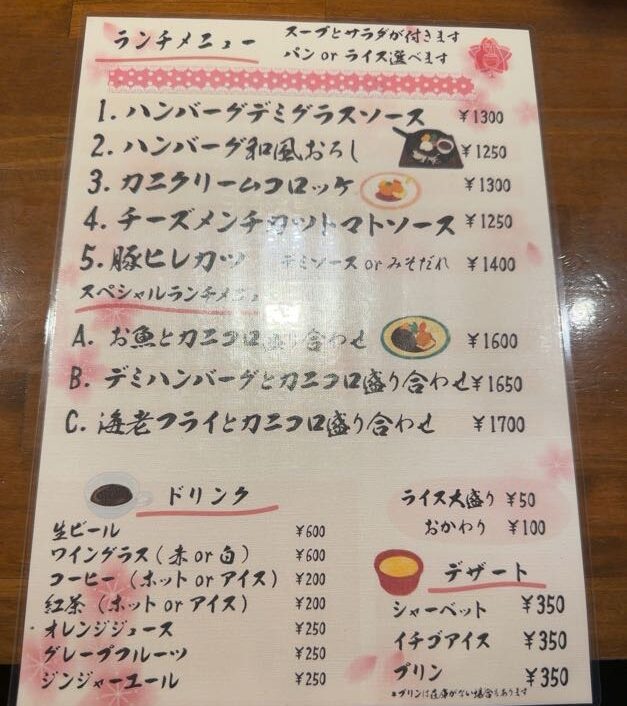 ランチメニュー
スープとサラダが付きます
パン or ライス選べます
1. ハンバーグデミグラスソース ¥1300
2. ハンバーグ和風おろし ¥1250
3. カニクリームコロッケ ¥1300
4. チーズメンチカツトマトソース ¥1250
5. 豚ヒレカツ デミソース or みそだれ ¥1400
スペシャルランチメニュー
A. お魚とカニコロ盛り合わせ ¥1600
B. デミハンバーグとカニコロ盛り合わせ ¥1650
C. 海老フライとカニコロ盛り合わせ ¥1700
ドリンク
生ビール ¥600
ワイングラス(赤 or 白) ¥600
コーヒー(ホット or アイス) ¥200
紅茶(ホット or アイス) ¥200
オレンジジュース ¥250
グレープフルーツ ¥250
ジンジャーエール ¥250
ライス大盛り ¥50
おかわり ¥100
デザート
シャーベット ¥350
イチゴアイス ¥350
プリン ¥350
*プリンは在庫がない場合もあります